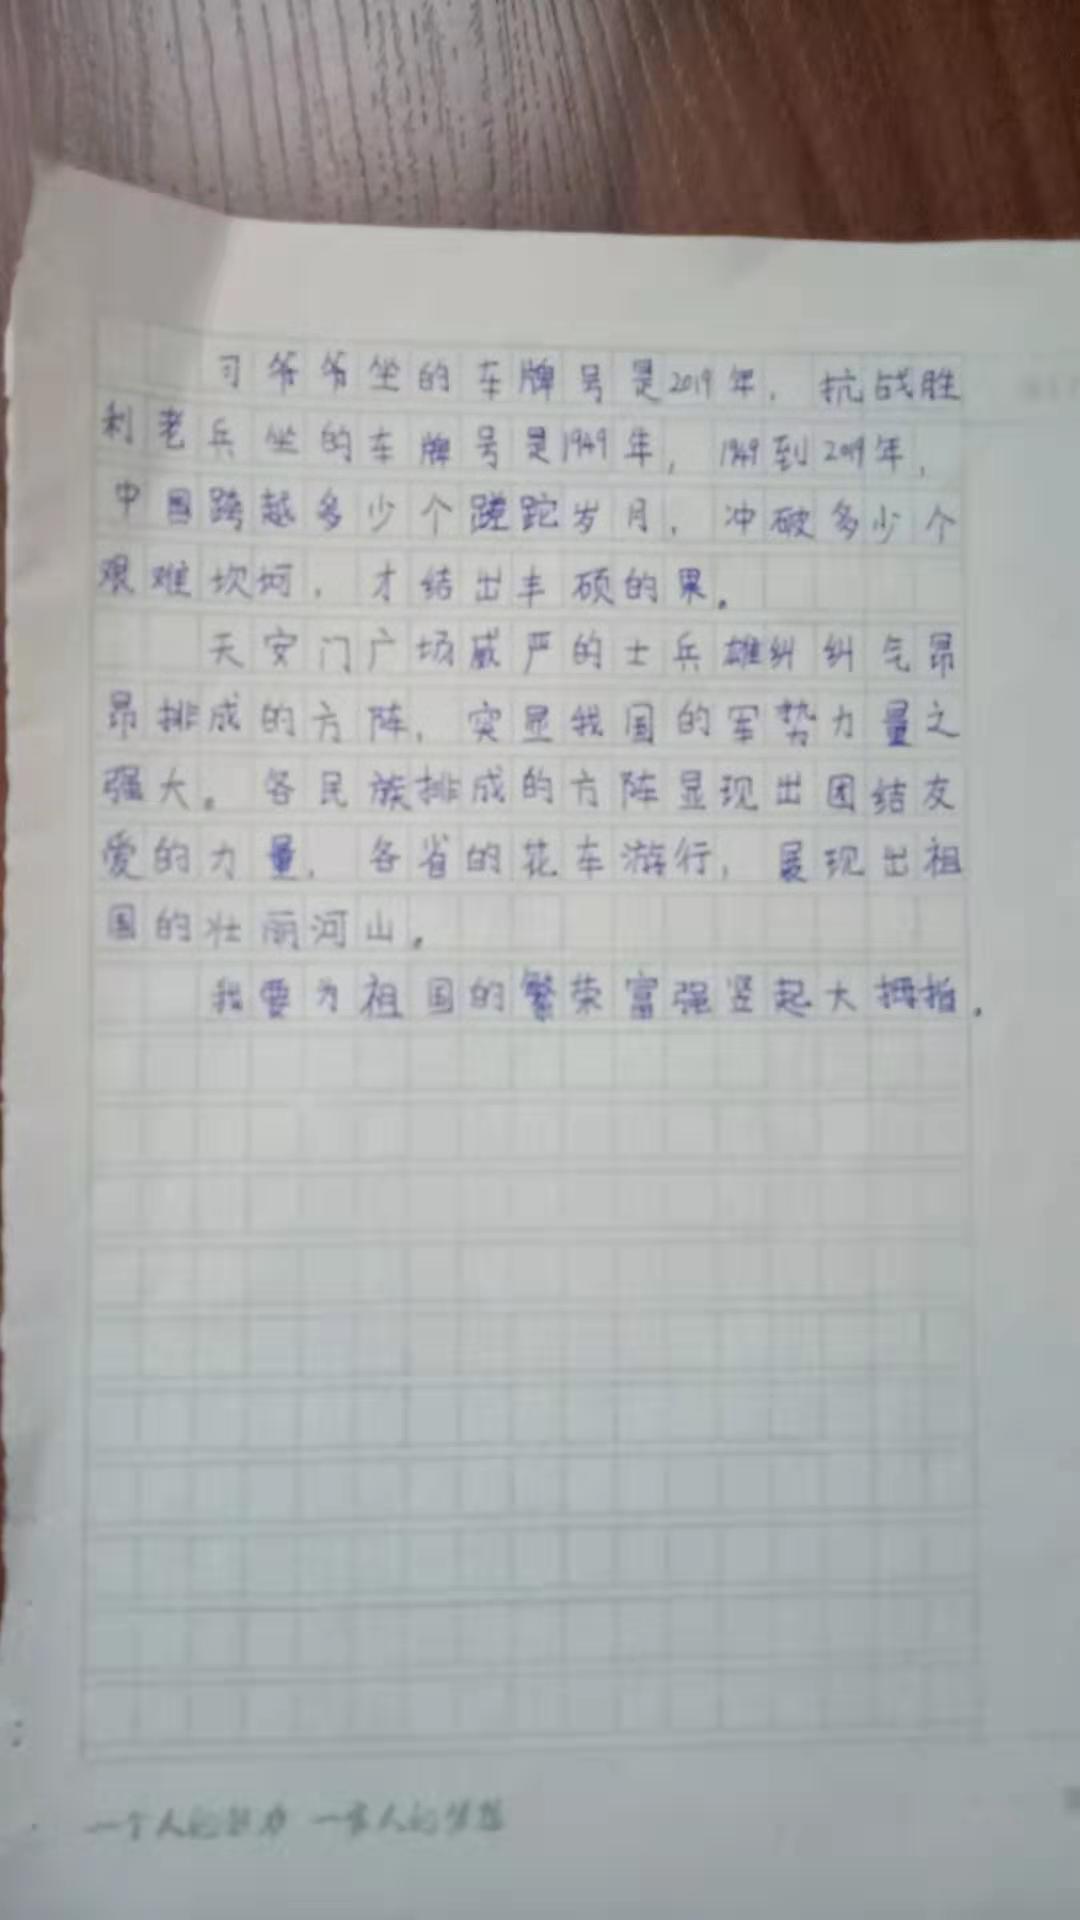 习爷爷坐的车牌号是2019年，抗战胜
利老兵坐的车牌号是1949年，1949到2019年，
中国跨越多少个蹉跎岁月，冲破多少个
艰难坎坷，才结出丰硕的果。
天安门广场威严的士兵雄纠纠气昂
昂排成的方阵，突显我国的军势力量之
强大。各民族排成的方阵显现出团结友
爱的力量，各省的花车游行，展现出祖
国的壮丽河山。
我要为祖国的繁荣富强竖起大拇指。
一个人的努力 一家人的梦想